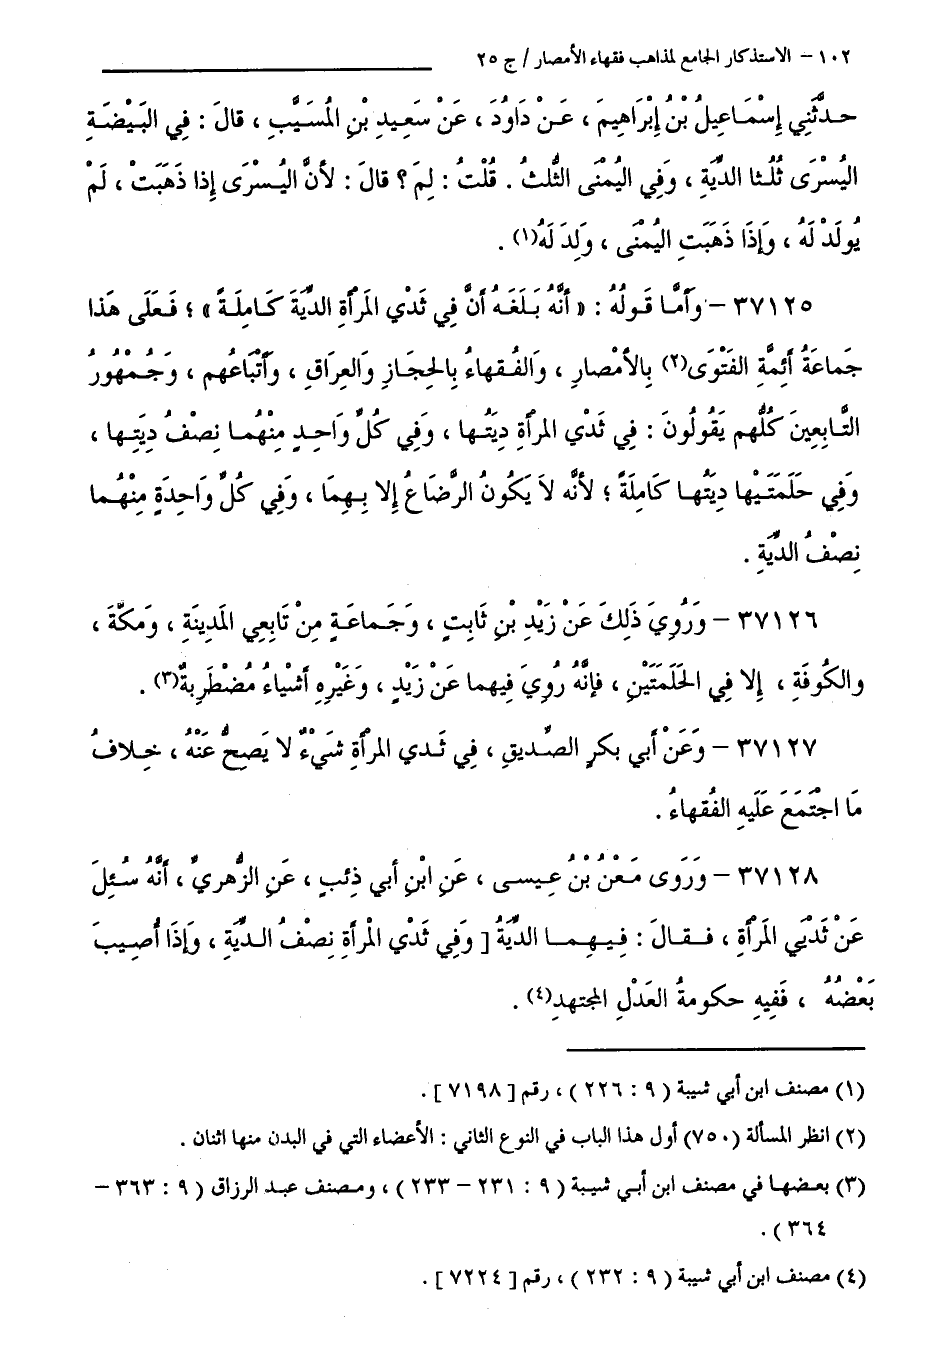 ١٠٢ – الاستذكار الجامع لمذاهب فقهاء الأمصار / ج ٢٥
حدَّثَنِي إِسْمَاعِيلُ بْنُ إِبْرَاهِيمَ ، عَنْ دَاوُدَ ، عَنْ سَعِيدِ بْنِ الْمُسَيَّبِ ، قالَ : فِي البَيْضَةِ
اليُسْرَى ثُلُثا الدِّيَةِ ، وَفِي اليُمْنَى الثُّلثُ . قُلْتُ : لِمَ ؟ قالَ : لأنَّ اليُسْرَى إِذا ذَهَبَتْ ، لَمْ
يُولَدْ لَهُ ، وَإِذَا ذَهَبَتِ اليُمْنَى ، وُلِدَ لَهُ(١) .
٣٧١٢٥ – وَأَمَّا قَولُهُ : « أَنَّهُ بَلَغَهُ أَنَّ فِي ثَدْيِ المَرأَةِ الدِّيَةَ كَامِلَةً » ؛ فَعَلَى هَذا
جَماعَةُ أَئِمَّةِ الفَتْوَى(٢) بِالأمْصارِ ، وَالفُقهاءُ بِالحِجَازِ والعِراقِ ، وَأَتْبَاعُهم ، وَجُمْهُورُ
التَّابِعِينَ كُلُّهم يَقُولُونَ : فِي ثَدْيِ المرْأةِ دِيَتُها ، وَفِي كُلِّ وَاحِدٍ مِنْهُما نِصْفُ دِيَتِها ،
وَفِي حَلَمَتَيْها دِيَتُها كَامِلَةً ؛ لأنَّه لاَ يَكُونُ الرَّضَاعُ إلا بِهِمَا ، وَفِي كُلِّ وَاحِدَةٍ مِنْهُما
نِصْفُ الدِّيَةِ .
٣٧١٢٦ – وَرُوِيَ ذَلِكَ عَنْ زَيْدِ بْنِ ثَابِتٍ ، وَجَماعَةٍ مِنْ تَابِعِي المَدِينَةِ ، وَمَكَّةَ ،
والكُوفَةِ ، إِلا فِي الحَلَمَتَيْنِ ، فإنَّهُ رُوِيَ فِيهما عَنْ زَيْدٍ ، وَغَيْرِهِ أَشْياءُ مُضْطَرِبةٌ(٣) .
٣٧١٢٧ – وَعَنْ أَبِي بكرٍ الصِّديقِ ، فِي ثَدي المرأةِ شَيْءٌ لا يَصِحُّ عَنْهُ ، خِلافُ
مَا اجْتَمَعَ عَلَيهِ الفُقهاءُ .
٣٧١٢٨ – وَرَوَى مَعْنُ بْنُ عِيسى ، عَنِ ابْنِ أَبِي ذِئبٍ ، عَنِ الزُّهريِّ ، أَنَّهُ سُئِلَ
عَنْ ثَدْيَيِ المَرْأَةِ ، فَقالَ : فِيهِما الدِّيَةُ [ وَفِي ثَدْيِ الْمرْأةِ نِصْفُ الدِّيَةِ ، وَإِذَا أُصِيبَ
بَعْضُهُ ، فَفِيهِ حكومةُ العَدْلِ المجتهدِ(٤) .
(١) مصنف ابن أبي شيبة ( ٩ : ٢٢٦ ) ، رقم [ ٧١٩٨ ] .
(٢) انظر المسألة (٧٥٠) أول هذا الباب في النوع الثاني : الأعضاء التي في البدن منها اثنان .
(٣) بعضها في مصنف ابن أبي شيبة ( ٩ : ٢٣١ – ٢٣٣ ) ، ومصنف عبد الرزاق ( ٩ : ٣٦٣ –
٣٦٤ ) .
(٤) مصنف ابن أبي شيبة ( ٩ : ٢٣٢ ) ، رقم [ ٧٢٢٤ ] .